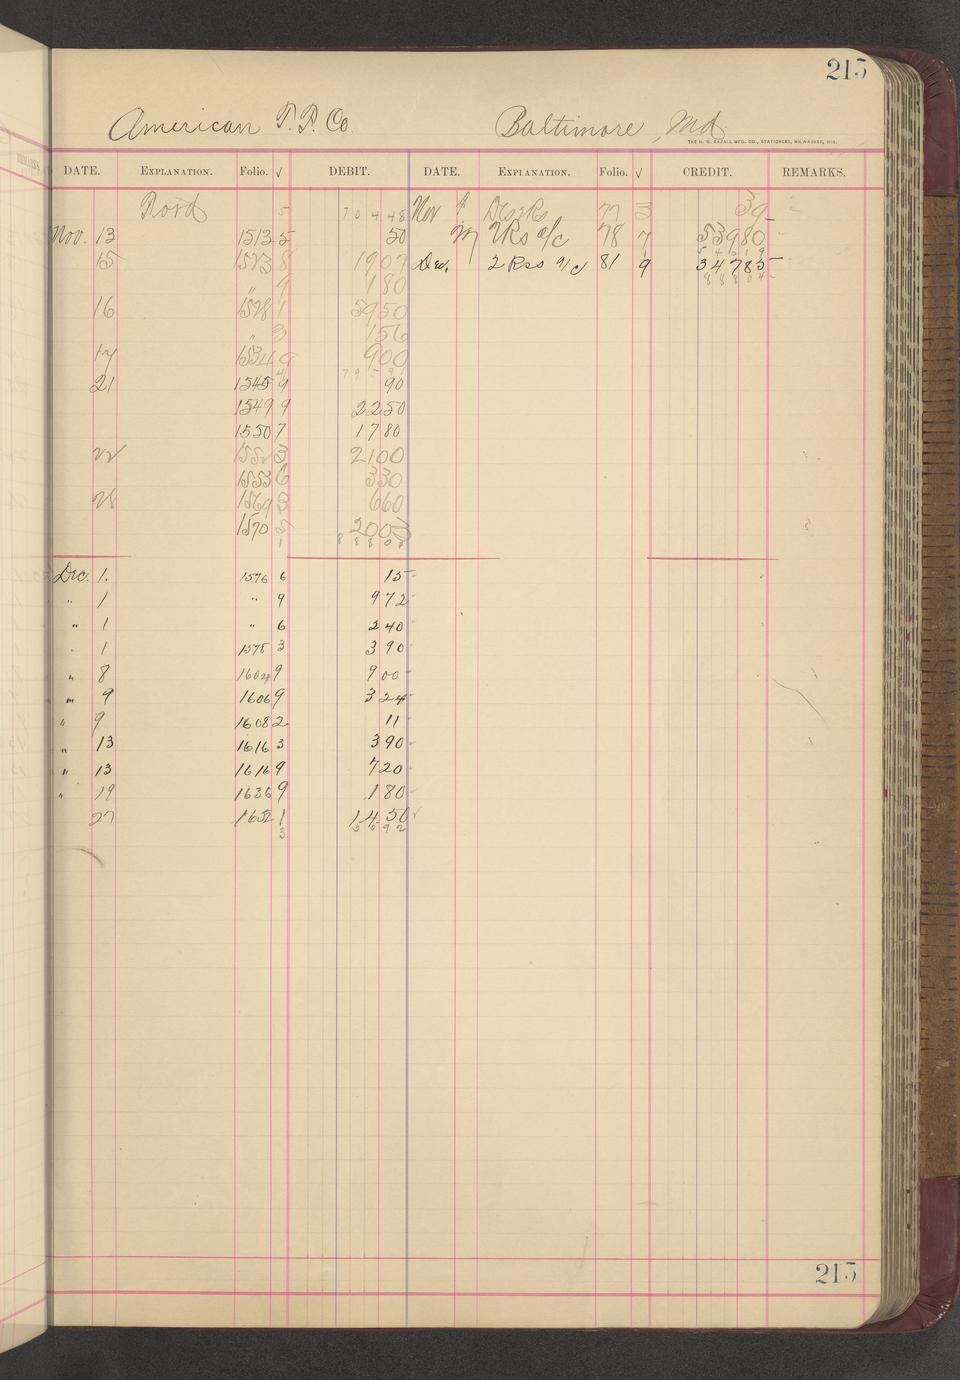 215
American T.P. Co. Baltimore, Md
THE H. G. RAZALL MFG. CO., STATIONERS, MILWAUKEE, WIS.
REMARKS.
DATE. EXPLANATION. Folio. √ DEBIT. DATE. EXPLANATION. Folio. √ CREDIT. REMARKS.
5 70448 Nov 77 3 39
Nov. 13 1513 5 50 2Rs a/c 78 7 53980
54019
15 1523 8 1907 Dec. 2 Rss a/c 81 9 34785
88804
" 9 180
16 1528 1 5950
" 3 156
17 1534 9 900
21 1545 9 90
1549 9 2250
1550 7 1780
22 1552 3 2100
1553 6 330
28 1569 3 660
1570 5 2005
1 8880
Dec. 1. 1576 6 15
" 1 " 9 972
" 1 " 6 240
" 1 1578 3 390
" 8 1604 9 900
" 9 1606 9 324
" 9 1608 2 11
" 13 1616 3 390
" 13 1616 9 720
" 19 1636 9 180
27 1652 1 1450
3 5692
215